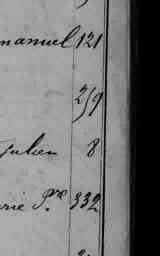 manuel 121
259
Julien 8
rie Pre. 332